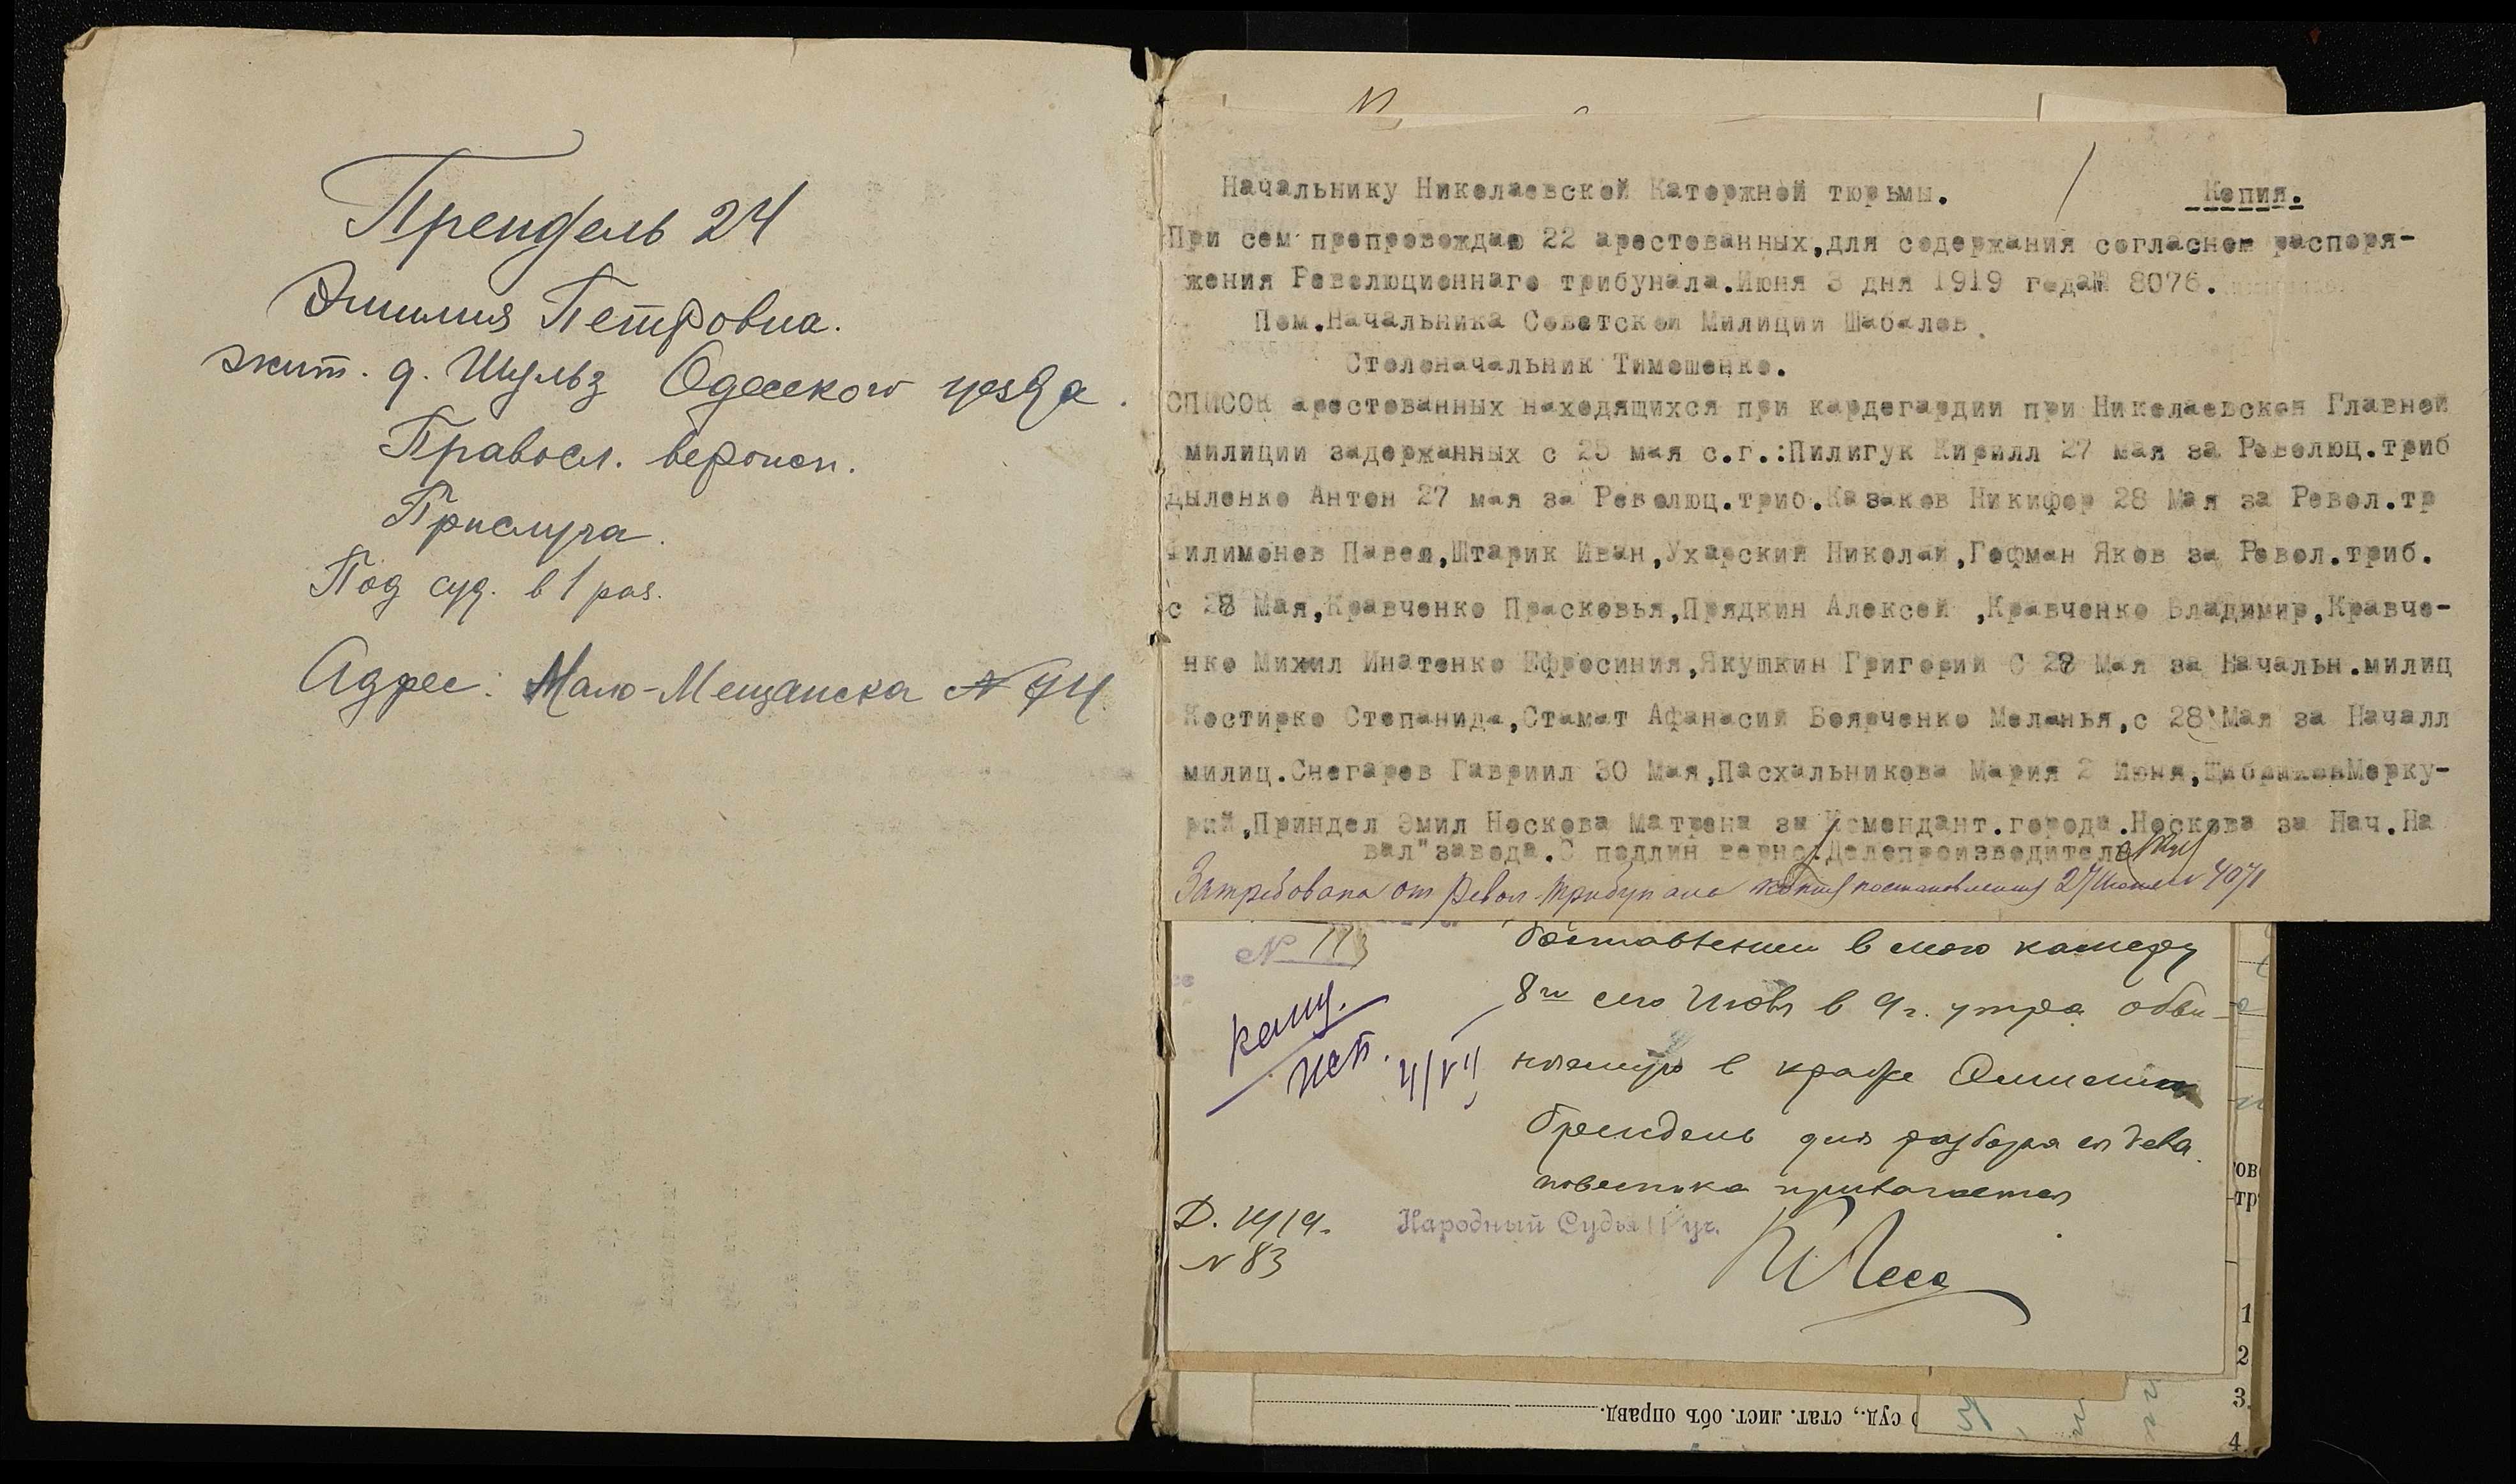 Прендель 24
Эмилия Петровна.
жит. д. Шульз Одесского уезда.
Правосл. вероисп.
Прислуга.
Под суд. в 1 раз.
Адрес: Мало-Мещанска №
Начальнику Николаевской Каторжной тюрьмы. / Копия.
При сем препровождаю 22 арестованных,для содержания согласном распоря-
жения Революционнаго трибунала.Июня 3 дня 1919 года№ 8076.
Пом.Начальника Советской Милиции Шабалов.
Столоначальник Тимошенко.
СПИСОК арестованных находящихся при кардегардии при Николаевской Главной
милиции задержанных с 25 мая с.г.:Пилигук Кирилл 27 мая за Революц.триб
Дыленко Антон 27 мая за Революц.триб.Казаков Никифор 28 Мая заРевол.тр
Филимонов Павел,Штарик Иван,Ухарский Николай,Гофман Яков за Револ.триб.
с 28 Мая,Кравченко Прасковья,Прядкин Алексей ,Кравченко Владимир,Кравче-
нко Михил Инатенко Ефросиния,Якушкин Григорий С 28 Мая за Начальн.милиц
Костирко Степанида,Стамат Афанасий Боярченко Меланья,с 28 Мая за Началл
милиц.Снегарев Гавриил 30 Мая,Пасхальникова Мария 2 Июня, Мерку-
рий,Приндел Эмил Носкова Матрена за Комендант.города.Носкова за Нач.На
вал"завода.С подлин верно:Делопроизводитель
Затребована от Револ. трибунала копия постановления 27 Июня №
№ 113
доставлении в мою камеру
8го сего Июля в 9 г. утра обви-
няемую в краже Эмилию
Брендель для разбора ея дела.
повестка прилагается
исп. 4/VII
Д. 1919.
№ 83
Народный Судья 11 уч.
суд., стат. лист. объ оправд.
ов
тр
1
2
3.
4.